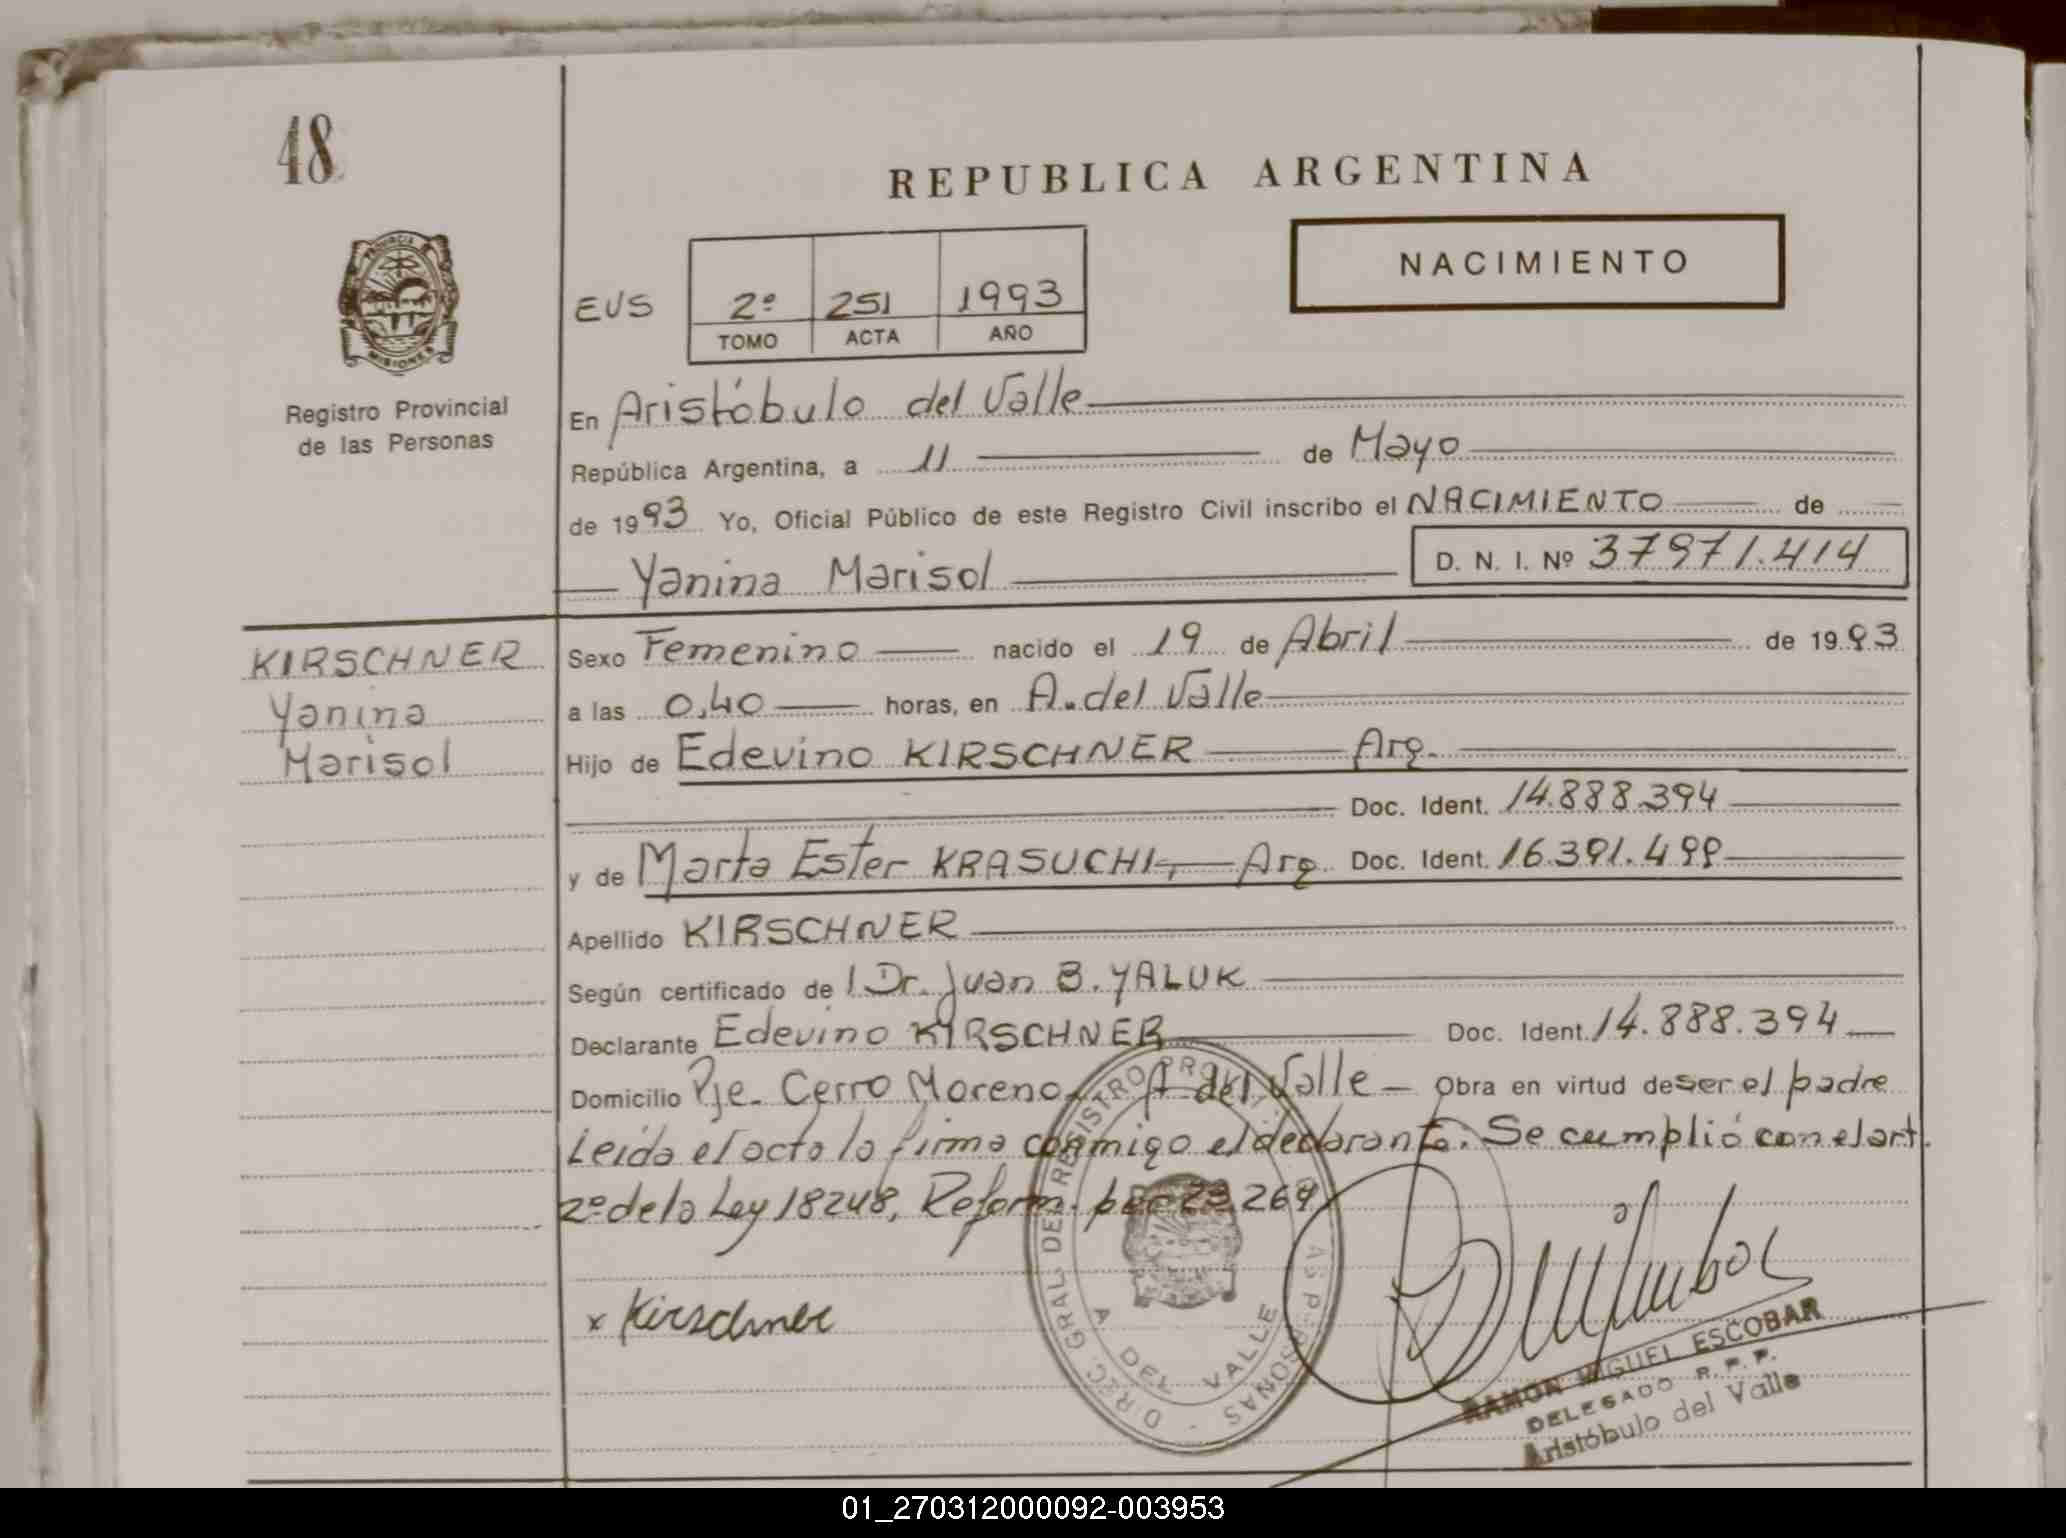 48
REPUBLICA ARGENTINA
PROVINCIA
MISIONES
NACIMIENTO
EVS 2º 251 1993
TOMO ACTA AÑO
Registro Provincial
de las Personas
En Aristóbulo del Valle
República Argentina, a 11 de Mayo
de 1993 Yo, Oficial Público de este Registro Civil inscribo el NACIMIENTO de
Yanina Marisol D. N. I. Nº 37971.414
KIRSCHNER
Yanina
Marisol
Sexo Femenino nacido el 19 de Abril de 1993
a las 0,40 horas, en A. del Valle
Hijo de Edevino KIRSCHNER Arg.
Doc. Ident. 14.888.394
y de Marta Ester KRASUCHI, Arg. Doc. Ident. 16.391.499
Apellido KIRSCHNER
Según certificado de l Dr. Juan B. YALUK
Declarante Edevino KIRSCHNER Doc. Ident. 14.888.394
Domicilio Pje. Cerro Moreno A del Valle Obra en virtud de ser el padre
Leída el acta la firma conmigo el declarante. Se cumplió con el art.
2º de la Ley 18248, Reform. por 23.264
x Kirschner
DIREC. GRAL. DEL REGISTRO PROV. PERSONAS
A DEL VALLE
RAMON MIGUEL ESCOBAR
DELEGADO R.P.P.
Aristóbulo del Valle
01_270312000092-003953